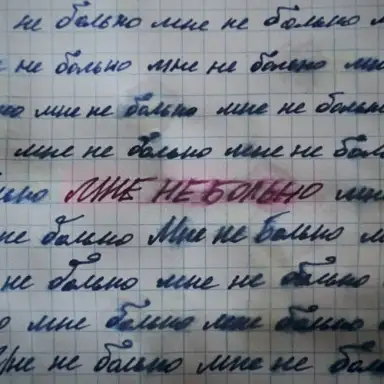 не больно мне не больно
не больно мне не больно
мне не больно мне не больно
мне не больно мне не
МНЕ НЕ БОЛЬНО
не больно Мне не больно
не больно мне не больно
мне больно мне больно
Мне не больно мне не